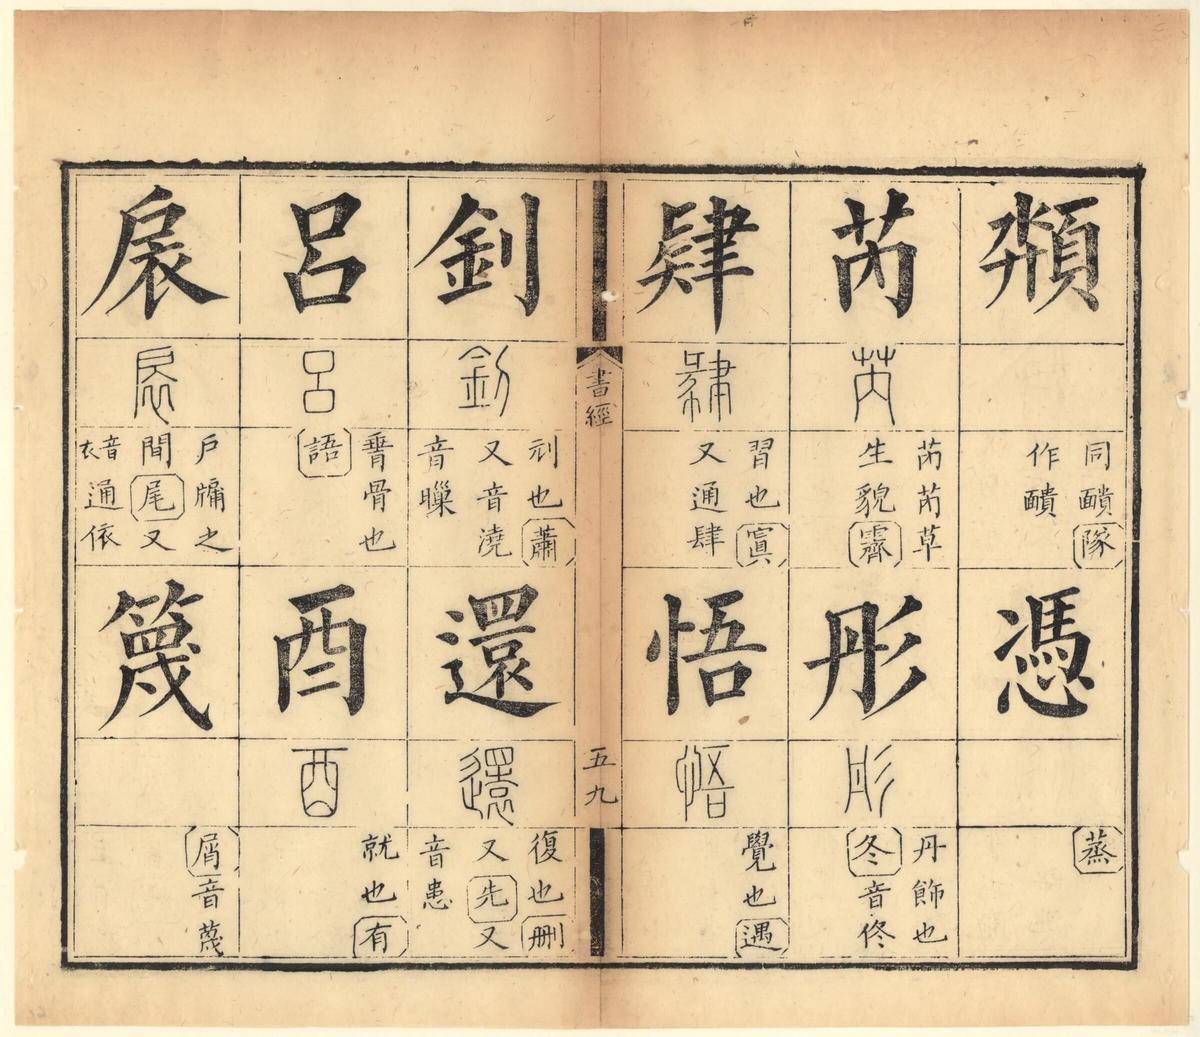 頮
同靧隊
作靧
憑
蒸
芮
芮
芮芮草
生貌霽
彤
彤
丹飾也
冬音佟
肄
肄
習也寘
又通肆
悟
悟
覺也遇
書經
五九
釗
釗
刓也蕭
又音澆
音
還
還
復也刪
又先又
音患
呂
呂
脊骨也
語
酉
酉
就也有
扆
扆
戶牖之
間尾又
音衣通依
篾
屑音蔑